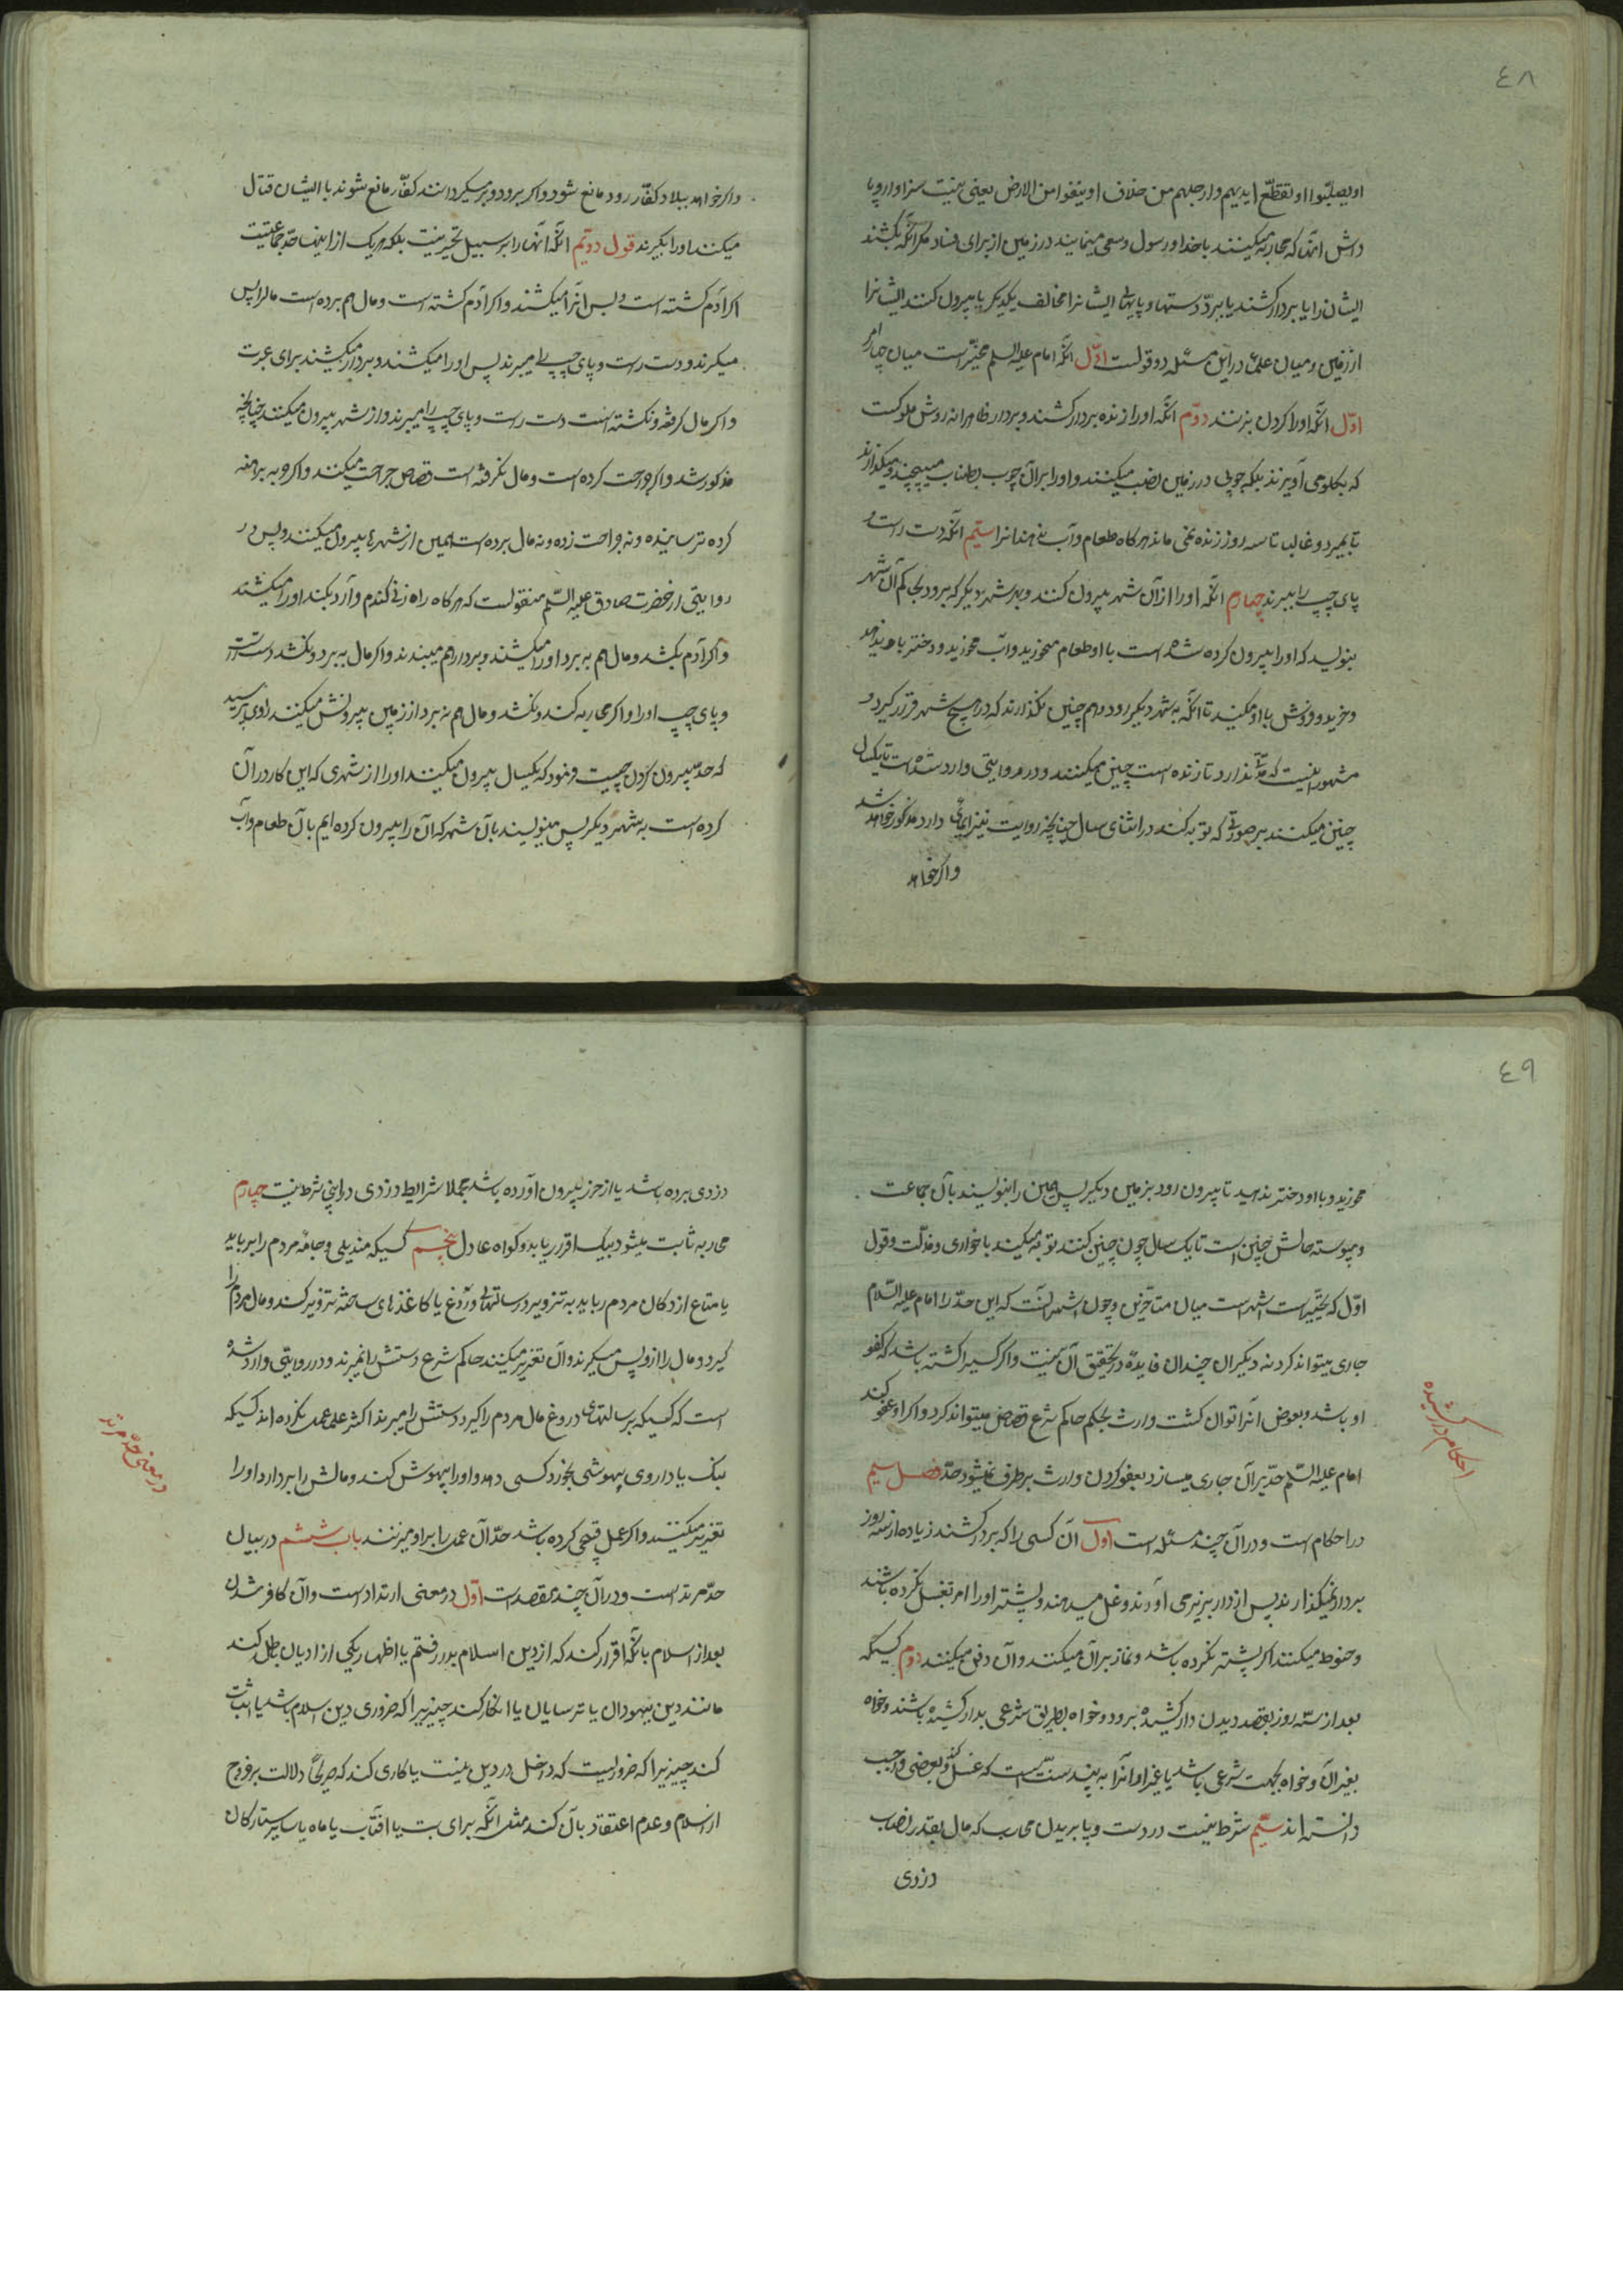 ٤٨
او یصلبوا او تقطع ایدیهم و ارجلهم من خلاف او ینفوا من الارض یعنی نیست سزاوار و پا
داش انها که محاربه میکنند با خدا و رسول و سعی مینمایند در زمین از برای فساد مکر آنکه بکشند
ایشان را یا بردار کشند یا ببرد دستها و پایهای ایشانرا مخالف یکدیکر یا بیرون کنند ایشانرا
از زمین و میان علما در این مسئله دو قولست اوّل آنکه امام علیه السلم مخیّر است میان چهار امر
اوّل آنکه او را کردن بزنند دوّم آنکه او را زنده بردار کشند و بردار ظاهرا نه روش ملوکست
که بکلو می آویزند بلکه چوبی در زمین نصب میکنند و او را بر آن چوب بطناب میپیچند و میکذارند
تا بمیرد و غالبا تا سه روز زنده نمی ماند هرکاه طعام و آب ندهند انرا سیّم آنکه دست راست و
پای چپ را ببرند چهارم آنکه او را از آن شهر بیرون کنند و بهر شهر دیکر که برود بحاکم آن شهر
بنویسد که او را بیرون کرده شده است با او طعام مخورید و آب مخورید و دختر باو مدهید
و خرید و فروش با او مکنید تا آنکه به شهر دیکر رود و هم چنین نکذارند که در هیچ شهر قرار کیرد و
مشهور اینست که مدّت ندارد تا زنده است چنین میکنند و در روایتی وارد شده است تا یکسال
چنین میکنند بر صورتی که توبه کند در اثنای سال چنانچه روایت نیز ایمائی دارد مذکور خواهد شد
و اکر خواهد
و اکر خواهد ببلاد کفّار رود مانع شود و اکر برود و برمیکردانند کفّار مانع شوند با ایشان قتال
میکنند او را بکیرند قول دویّم آنکه آنها را بر سبیل تخیر نیست بلکه هر یک از اینها حدّ جماعتیست
اکر آدم کشته است و بس انرا میکشند و اکر آدم کشته است و مال هم برده است مال را پس
میکیرند و دست راست و پای چپ را میبرند پس او را میکشند و بردار میکشند برای عبرت
و اکر مال کرفته و نکشته است دست راست و پای چپ را میبرند و از شهر بیرون میکنند چنانچه
مذکور شد و اکر جراحت کرده است و مال نکرفته است قصاص جراحت میکنند و اکر حربه برهنه
کرده ترسانیده و نه جراحت زده و نه مال برده است همین از شهرها بیرون میکنند و پس در
روایتی از حضرت صادق علیه السّلم منقولست که هرکاه راه زنی کندم و آرد بکند او را میکشند
و اکر آدم بکشد و مال هم به برد او را میکشند و بردار هم میبندند و اکر مال به برد و نکشد دست راست
و پای چپ او را و اکر محاربه کند و نکشد و مال هم نه برد از زمین بیرونش میکنند راوی پرسید
که حدّ بیرون کردن چیست فرمود که یکسال بیرون میکنند او را از شهری که این کار در آن
کرده است به شهر دیکر پس مینویسند بآن شهر که آن را بیرون کرده ایم بآن طعام و آب
٤٩
مخورید و باو دختر ندهید تا بیرون رود بزمین دیکر پس همین را بنویسند بآن جماعت
و پیوسته حالش چنین است تا یک سال چون چنین کنند توبه میکند با خواری و مذلّت و قول
اوّل که تخییر است اشهر است میان متاخرین و چون اشهر انست که این حدّ را امام علیه السّلام
جاری میتواند کرد نه دیکران چندان فایده در تحقیق آن نیست و اکر کسیرا کشته باشد که کفو
او باشد و بعوض انرا توان کشت وارث بحکم حاکم شرع قصاص میتواند کرد و اکر او عفو کند
امام علیه السّلم حدّ بر آن جاری میسازد بعفو کردن وارث برطرف نمیشود حدّ فصل سیم
در احکام است و در آن چند مسئله است اوّل آن کسی را که بردار کشند زیاده از سه روز
بردار نمیکذارند پس از دار بزیر می آورند و غسل میدهند و پیشتر او را امر بغسل نکرده باشند
و حنوط میکنند اکر پیشتر نکرده باشد و نماز بر آن میکنند و آن دفن میکنند دوم کسیکه
بعد از سه روز بقصد دیدن دار کشیده برود و خواه بطریق شرعی بدار کشیده باشند و خواه
بغیر آن و خواه بجهت شرعی باشد یا غیر او آنرا به بیند سنّت است که غسل کند و بعضی واجب
دانسته اند سیّم شرط نیست در دست و پا بریدن محارب که مال بقدر نصاب
دزدی
احکام دار کشیده
دزدی برده باشد یا از حرز بیرون آورده باشد مجملا شرایط دزدی در اینجا شرط نیست چهارم
محاربه ثابت میشود بیک اقرار یا بدو کواه عادل پنجم کسیکه مندیلی و جامه مردم را برباید
یا متاع از دکان مردم رباید به تزویر و رسالتهای دروغ یا کاغذهای ساخته تزویر کند و مال مردم را
کیرد و مال را ازو پس میکیرند و آن تعزیر میکنند حاکم شرع دستش را نمیبرند و در روایتی وارد شده
است که کسیکه برسالتهای دروغ مال مردم را کیرد دستش را میبرند اکثر علما عمل نکرده اند کسیکه
بنک یا داروی بیهوشی بخورد کسی دهد و او را بیهوش کند و مالش را بردارد او را
تعزیر میکنند و اکر عمل قبیحی کرده باشد حدّ آن عمل را بر او میزنند باب ششم در بیان
حدّ مرتد است و در آن چند مقصد است اوّل در معنی ارتداد است و آن کافر شدن
بعد از اسلام بآنکه اقرار کند که از دین اسلام بدر رفتم یا اظهار یکی از ادیان باطل کند
مانند دین یهودان یا ترسایان یا انکار کند چیزیرا که ضروری دین اسلام باشد یا اثبات
کند چیزیرا که ضروریست که داخل در دین نیست یا کاری کند که صریحا دلالت بر خروج
از اسلام و عدم اعتقاد بآن کند مثل آنکه برای بت یا آفتاب یا ماه یا سایر ستارکان
در معنی حدّ مرتد